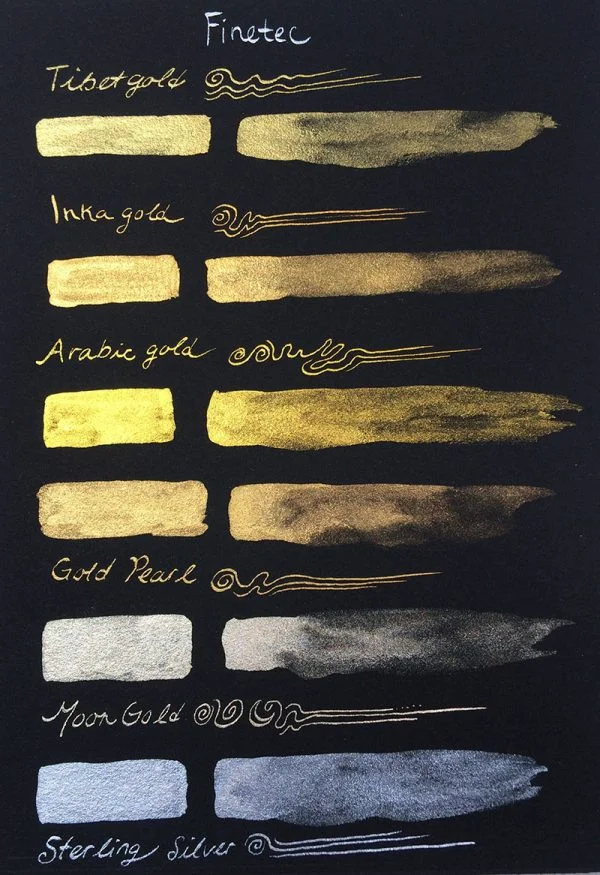 Finetec
Tibet gold
Inka gold
Arabic gold
Gold Pearl
Moon Gold
Sterling Silver